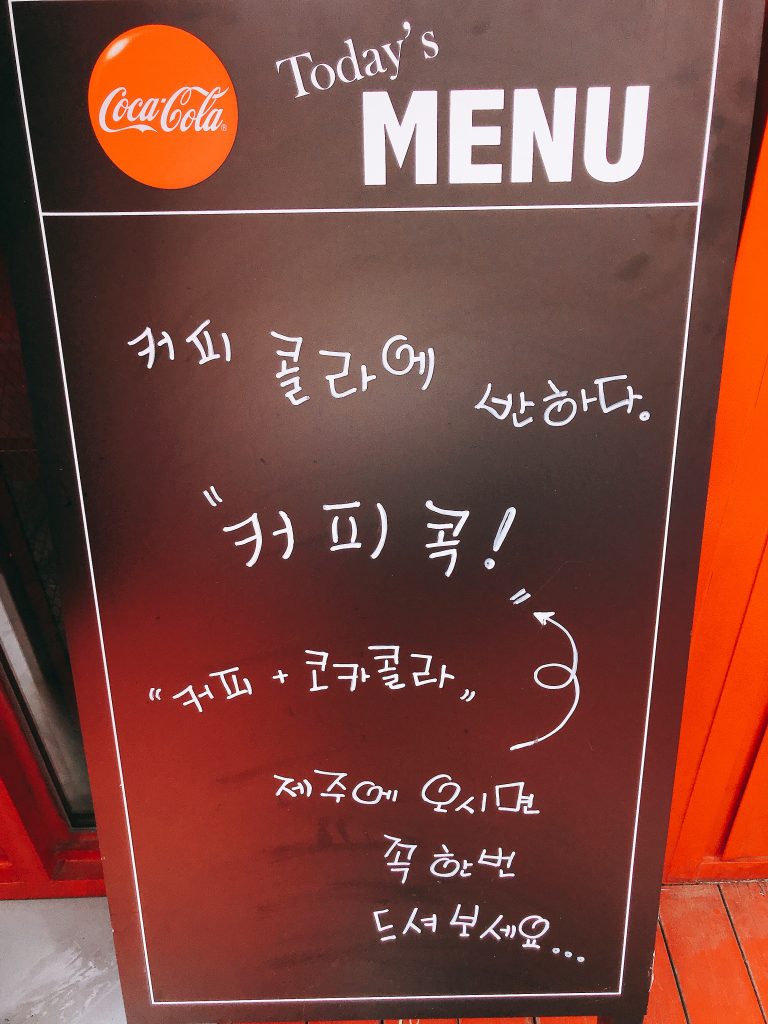 Coca-Cola
Today's
MENU
커피 콜라에 반하다.
"커피 콕!"
"커피 + 코카콜라"
제주에 오시면
꼭 한번
드셔보세요...